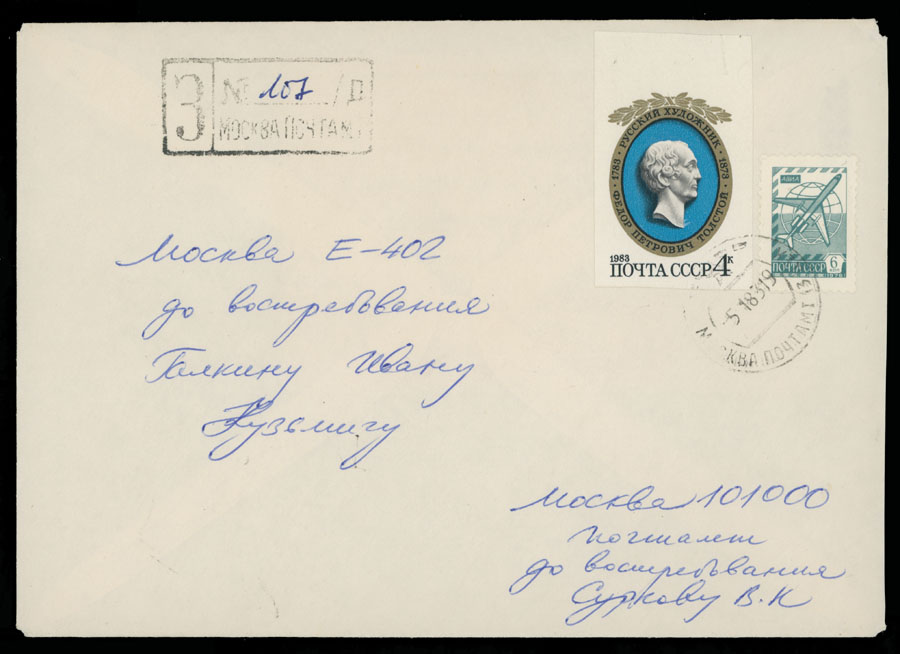 З № 107 /Д
МОСКВА ПОЧТАМТ
· 1783 · РУССКИЙ ХУДОЖНИК · 1873 ·
ФЕДОР ПЕТРОВИЧ ТОЛСТОЙ
1983
ПОЧТА СССР 4к
АВИА
ПОЧТА СССР 6
МОСКВА ПОЧТАМТ
Москва Е-402
до востребования
Галкину Ивану
Кузьмичу
Москва 101000
почтамт
до востребования
Суркову В.К